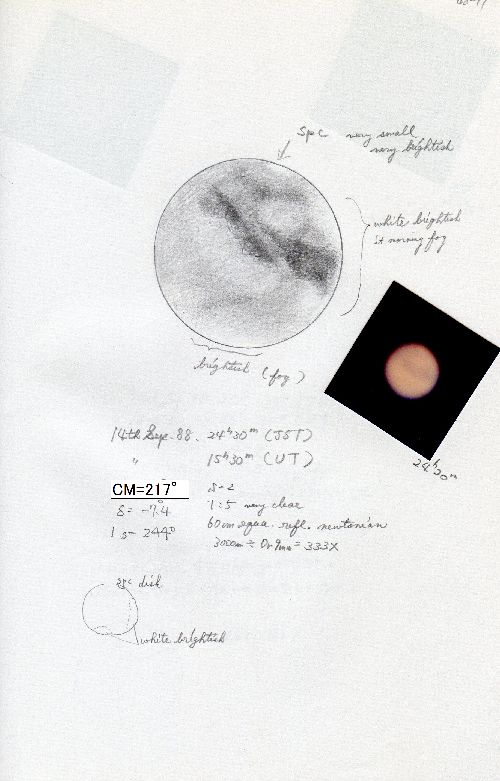 Spc very small
very brightish
white brightish
st morning fog
brightish (fog)
14th Sep. 88. 24h30m (JST)
" 15h30m (UT)
24h30m
CM=217°
δ= -7.4
T:5 very clear
Ls= 244°
60cm equa. refl. newtonian
3000mm ÷ Or 9mm = 333X
disk
white brightish